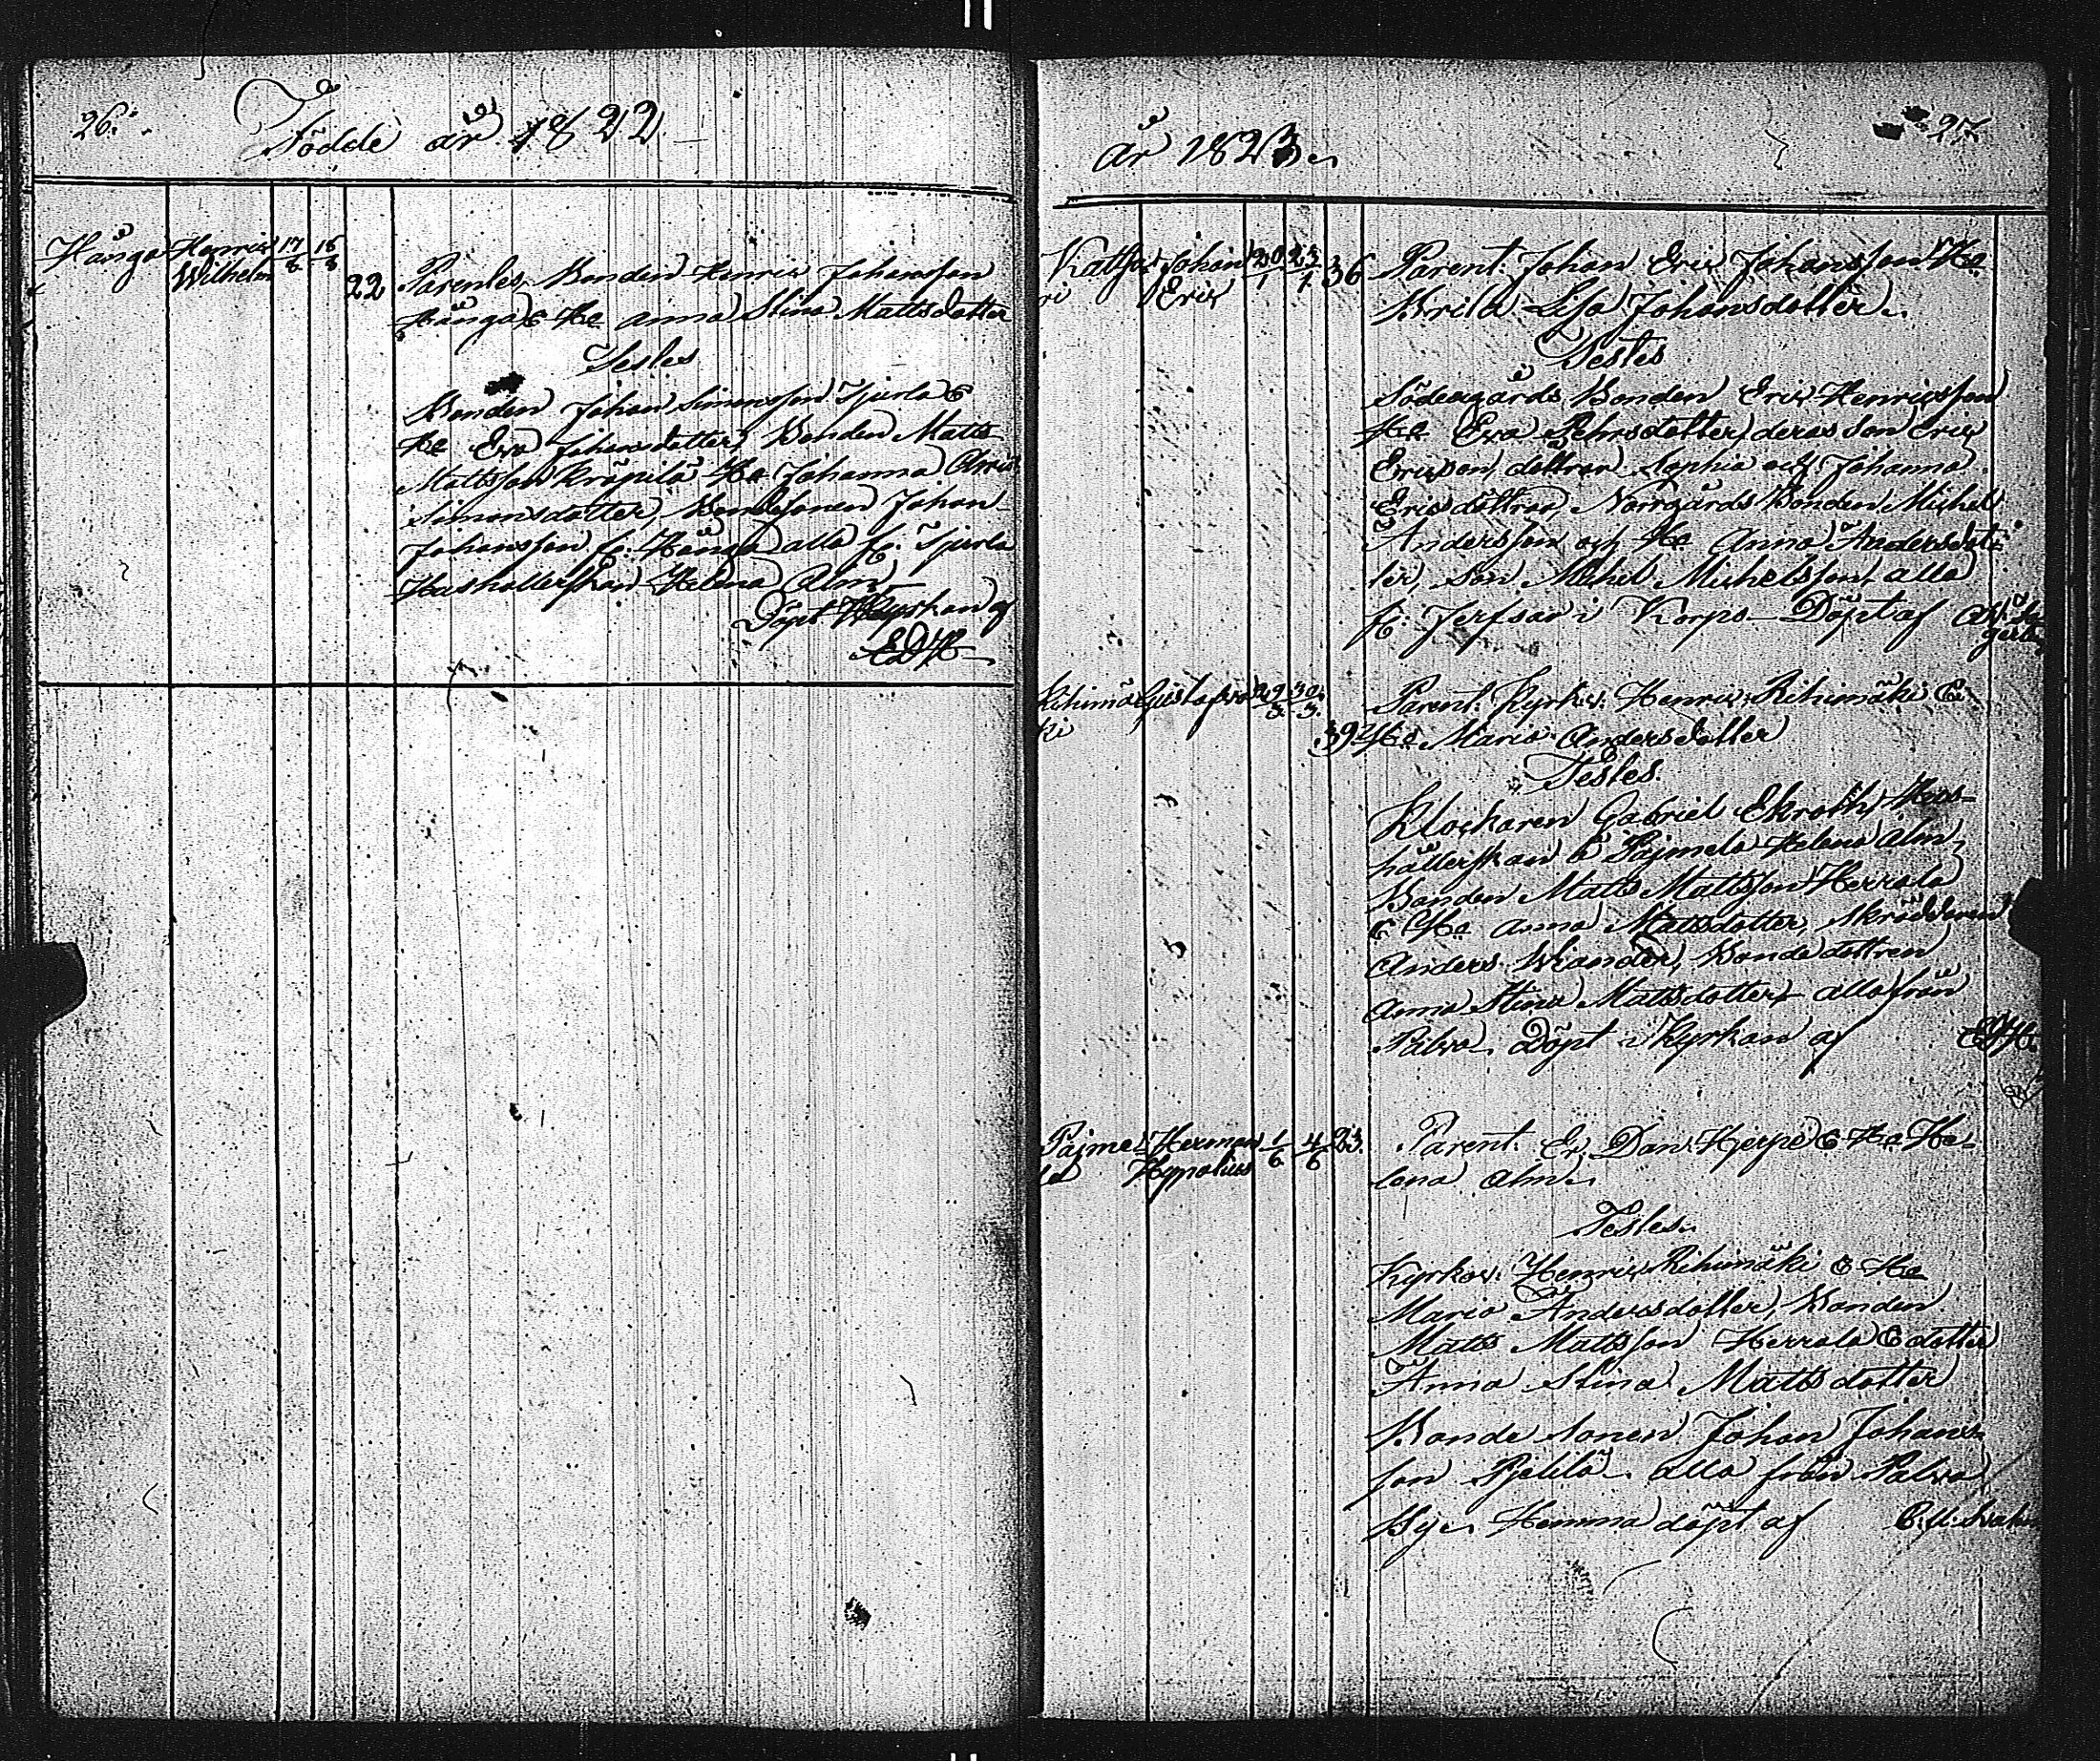 26.
Födde år 1822
Hånga Henric 17/8 18/8
Wilhelm
22 Parentes, Bonden Henric Johansson
Hånga & Ha Anna Stina Mattsdotter
Testes
Bonden Johan Simonsson Tjurla &
Ha Eva Johansdotter, Bonden Matts
Mattsson Kräpilä Ha Johanna
Simonsdotter, Bondesonen Johan
Johansson fr: Hånga alla fr: Tjurla
Hushållerskan Helena Alm
Döpt i Kyrkan af
EDH
år 1823.
27.
Johan 20/1 23/1 36 Parent. Johan Eric Johansson Ha
ri Eric Brita Lisa Johansdotter.
Testes
Södergårds Bonden Eric Henricsson
Ha Eva Pehrsdotter, deras son Eric
Ericson, döttrar Sophia och Johanna
Ericsdöttrar, Norrgårds Bonden Michel
Andersson och Ha Anna Andersdot-
ter, Son Michel Michelsson, alla
fr: Jerfsor i Korpo Döpt af
Rihimä Gustafva 29/3 30/3 Parent. Kyrkov. Henric Rihimäki &
ki 39 Ha Maria Andersdotter
Testes.
Klockaren Gabriel Ekroth, Hus-
hållerskan å Pajmela Helena Alm,
Bonden Matts Mattsson Herrala
& Ha Anna Mattsdotter, Skräddaren
Anders Bondedottren
Anna Stina Mattsdotter, alla från
Palva. Döpt i Kyrkan af EDH.
Pajme- Herman 1/6 4/6 23. Parent. Er. Dan. Herpe & Ha He-
la lena Alm.
Testes.
Kyrkov. Henric Rihimäki & Ha
Maria Andersdotter, Bonden
Matts Mattsson Herrala & dotter
Anna Stina Mattsdotter
Bonde Sonen Johan Johans-
son Pjelilä. alla från Palva
By. Hemma döpt af